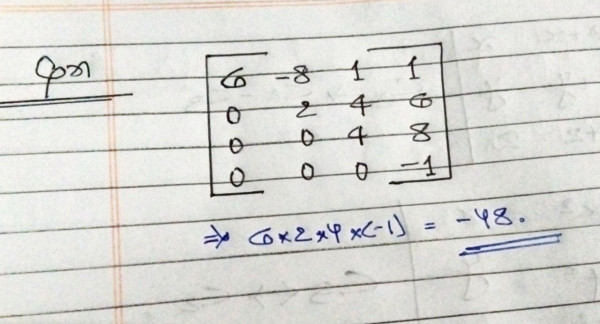 Qn
6 -8 1 1
0 2 4 6
0 0 4 8
0 0 0 -1
⇒ 6×2×4×(-1) = -48.